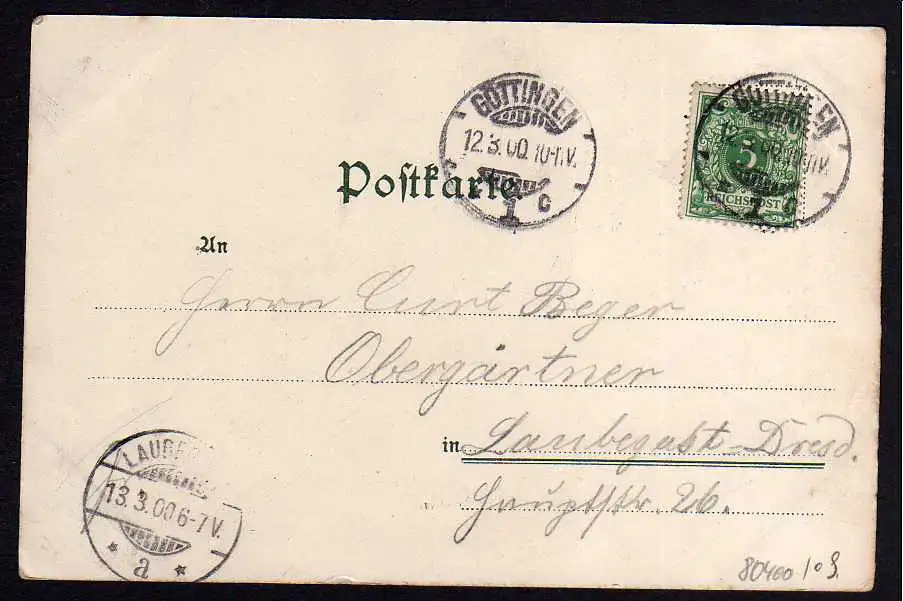 GÖTTINGEN
12.3.00.10-11.V.
1 c
GÖTTINGEN
12.3.00.10-11V.
1 c
5
REICHSPOST
Postkarte
An
Herrn Curt Beger
Obergärtner
in Laubegast-Dresd.
Hauptstr. 26.
LAUBE
13.3.00 6-7V.
* a *
80400